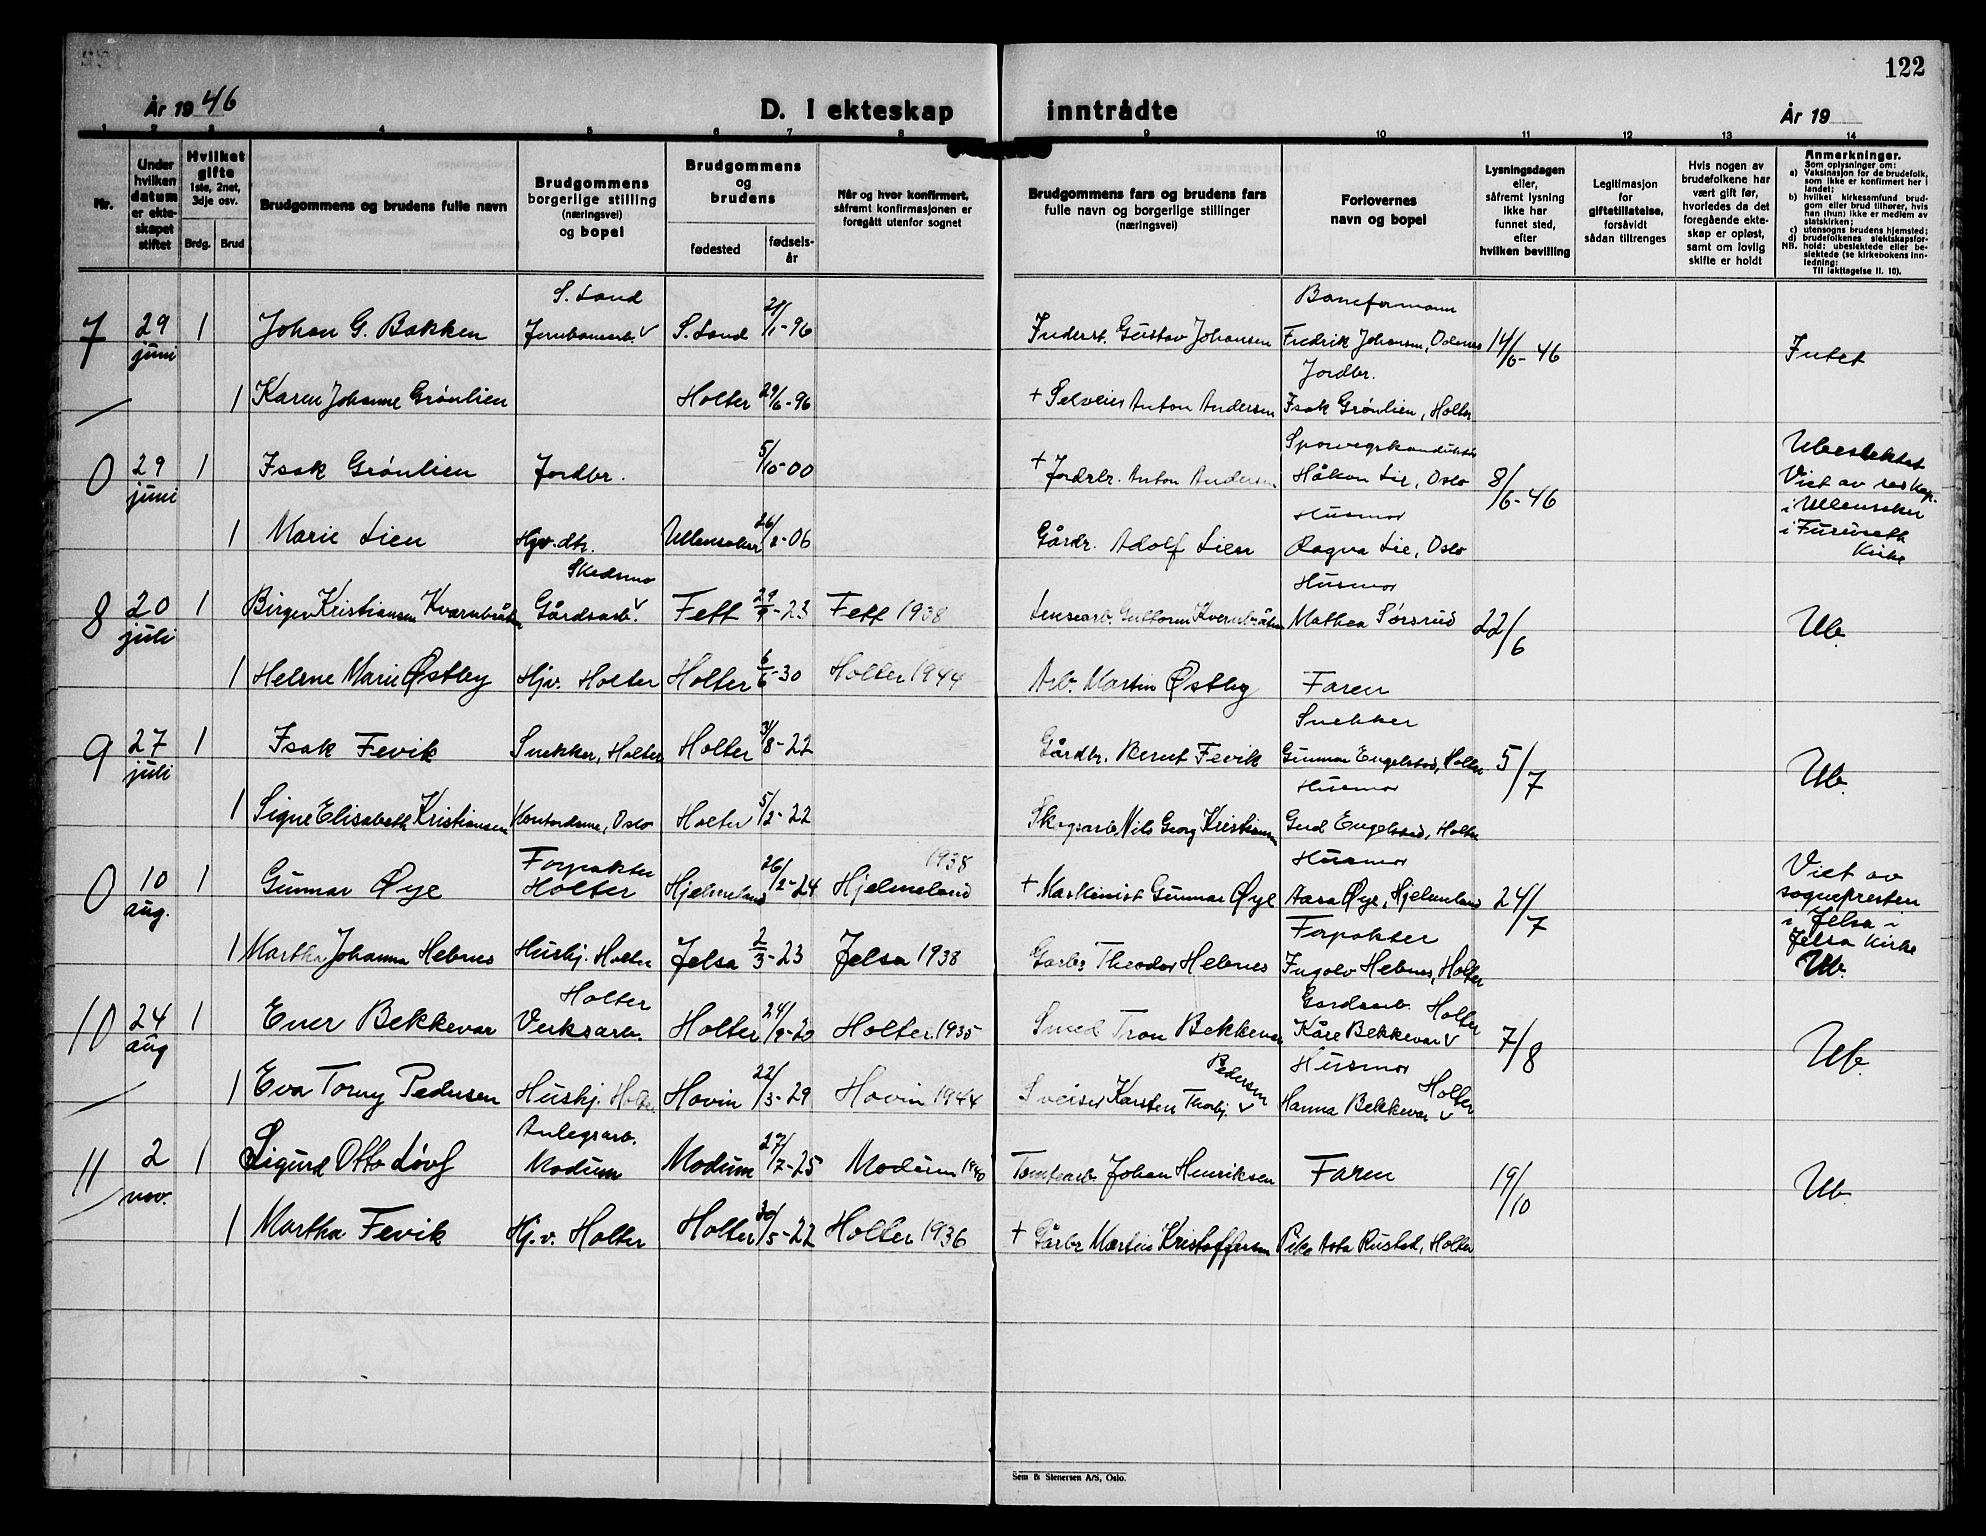 122
År 1946
D. I ekteskap inntrådte
År 19
1 2 3 4 5 6 7 8 9 10 11 12 13 14
Nr.
Under hvilken datum er ekteskapet stiftet
Hvilket gifte 1ste, 2net, 3dje osv.
Brdg. Brud
Brudgommens og brudens fulle navn
Brudgommens borgerlige stilling (næringsvei) og bopel
Brudgommens og brudens
fødested
fødselsår
Når og hvor konfirmert, såfremt konfirmasjonen er foregått utenfor sognet
Brudgommens fars og brudens fars fulle navn og borgerlige stillinger (næringsvei)
Forlovernes navn og bopel
Lysningsdagen eller, såfremt lysning ikke har funnet sted, efter hvilken bevilling
Legitimasjon for giftetillatelse, forsåvidt sådan tiltrenges
Hvis nogen av brudefolkene har vært gift før, hvorledes da det foregående ekteskap er opløst, samt om lovlig skifte er holdt
Anmerkninger.
Som oplysninger om:
a) Vaksinasjon for de brudefolk, som ikke er konfirmert her i landet;
b) hvilket kirkesamfund brudgom eller brud tilhører, hvis han (hun) ikke er medlem av statskirken;
c) utensogns brudens hjemsted;
d) brudefolkenes slektskapsforhold: ubeslektede eller beslektede (se kirkebokens innledning:
NB. Til iakttagelse II. 10).
7 29 juni 1 Johan G. Bakken S. Land Jernbanearb. S. Land 21/1-96 Inderst. Gustav Johansen Baneformann Fredrik Johansen, Odnes 14/6-46 Intet
1 Karen Johanne Grønlien Holter 29/6-96 + Selveier Anton Andersen Jordbr. Isak Grønlien, Holter
0 29 juni 1 Isak Grønlien Jordbr. 5/10-00 + Jordbr. Anton Andersen Sporvegskonduktør Håkon Lie, Oslo 8/6-46 Ubeslektet Viet av res. kap. i Ullensaker i Furuseth Kirke
1 Marie Lien Hjv. dtr. Ullensaker 26/2-06 Gårdr. Adolf Lien Husmor Ragna Lie, Oslo
8 20 juli 1 Birger Kristiansen Kvernbråten Skedsmo Gårdsarb. Fett 29/9-23 Fett 1938 Lensearb. Guttorm Kvernbråten Husmor Mathea Sørsrud 22/6 Ub.
1 Helene Marie Østby Hjv. Holter Holter 6/6-30 Holter 1944 Arb. Martin Østby Faren
9 27 juli 1 Isak Fevik Snekker, Holter Holter 3/8-22 Gårdbr. Bernt Fevik Snekker Gunnar Engelstad, Holter 5/7 Ub.
1 Signe Elisabeth Kristiansen Kontordame, Oslo Holter 5/2-22 Skogsarb. Nils Georg Kristiansen Husmor Gerd Engelstad, Holter
0 10 aug. 1 Gunnar Øye Forpakter Holter Hjelmeland 26/2-24 Hjelmeland 1938 + Maskinist Gunnar Øye Husmor Aasa Øye, Hjelmeland 24/7 Viet av sognepresten i Jelsa i Jelsa Kirke Ub.
1 Martha Johanna Hebnes Hushj. Holter Jelsa 2/3-23 Jelsa 1938 Gårbr. Theodor Hebnes Forpakter Ingolv Hebnes, Holter
10 24 aug 1 Ener Bekkevar Holter Verksarb. Holter 24/9-20 Holter 1935 Smed Tron Bekkevar Gardsarb. Holter Kåre Bekkevar 7/8 Ub.
1 Eva Torny Pedersen Hushj. Holter Hovin 22/3-29 Hovin 1944 Sveiser Karsten Thorbj. Pedersen Husmor Holter Hanna Bekkevar
11 2 nov. 1 Sigurd Otto Løvf Anlegsarb. Modum Modum 27/7-25 Modum 1940 Tomtearb. Johan Henriksen Faren 19/10 Ub.
1 Martha Fevik Hj.v. Holter Holter 30/5-22 Holter 1936 + Gårbr Martin Kristoffersen Pike Asta Rustad, Holter
Sem & Stenersen A/S, Oslo.